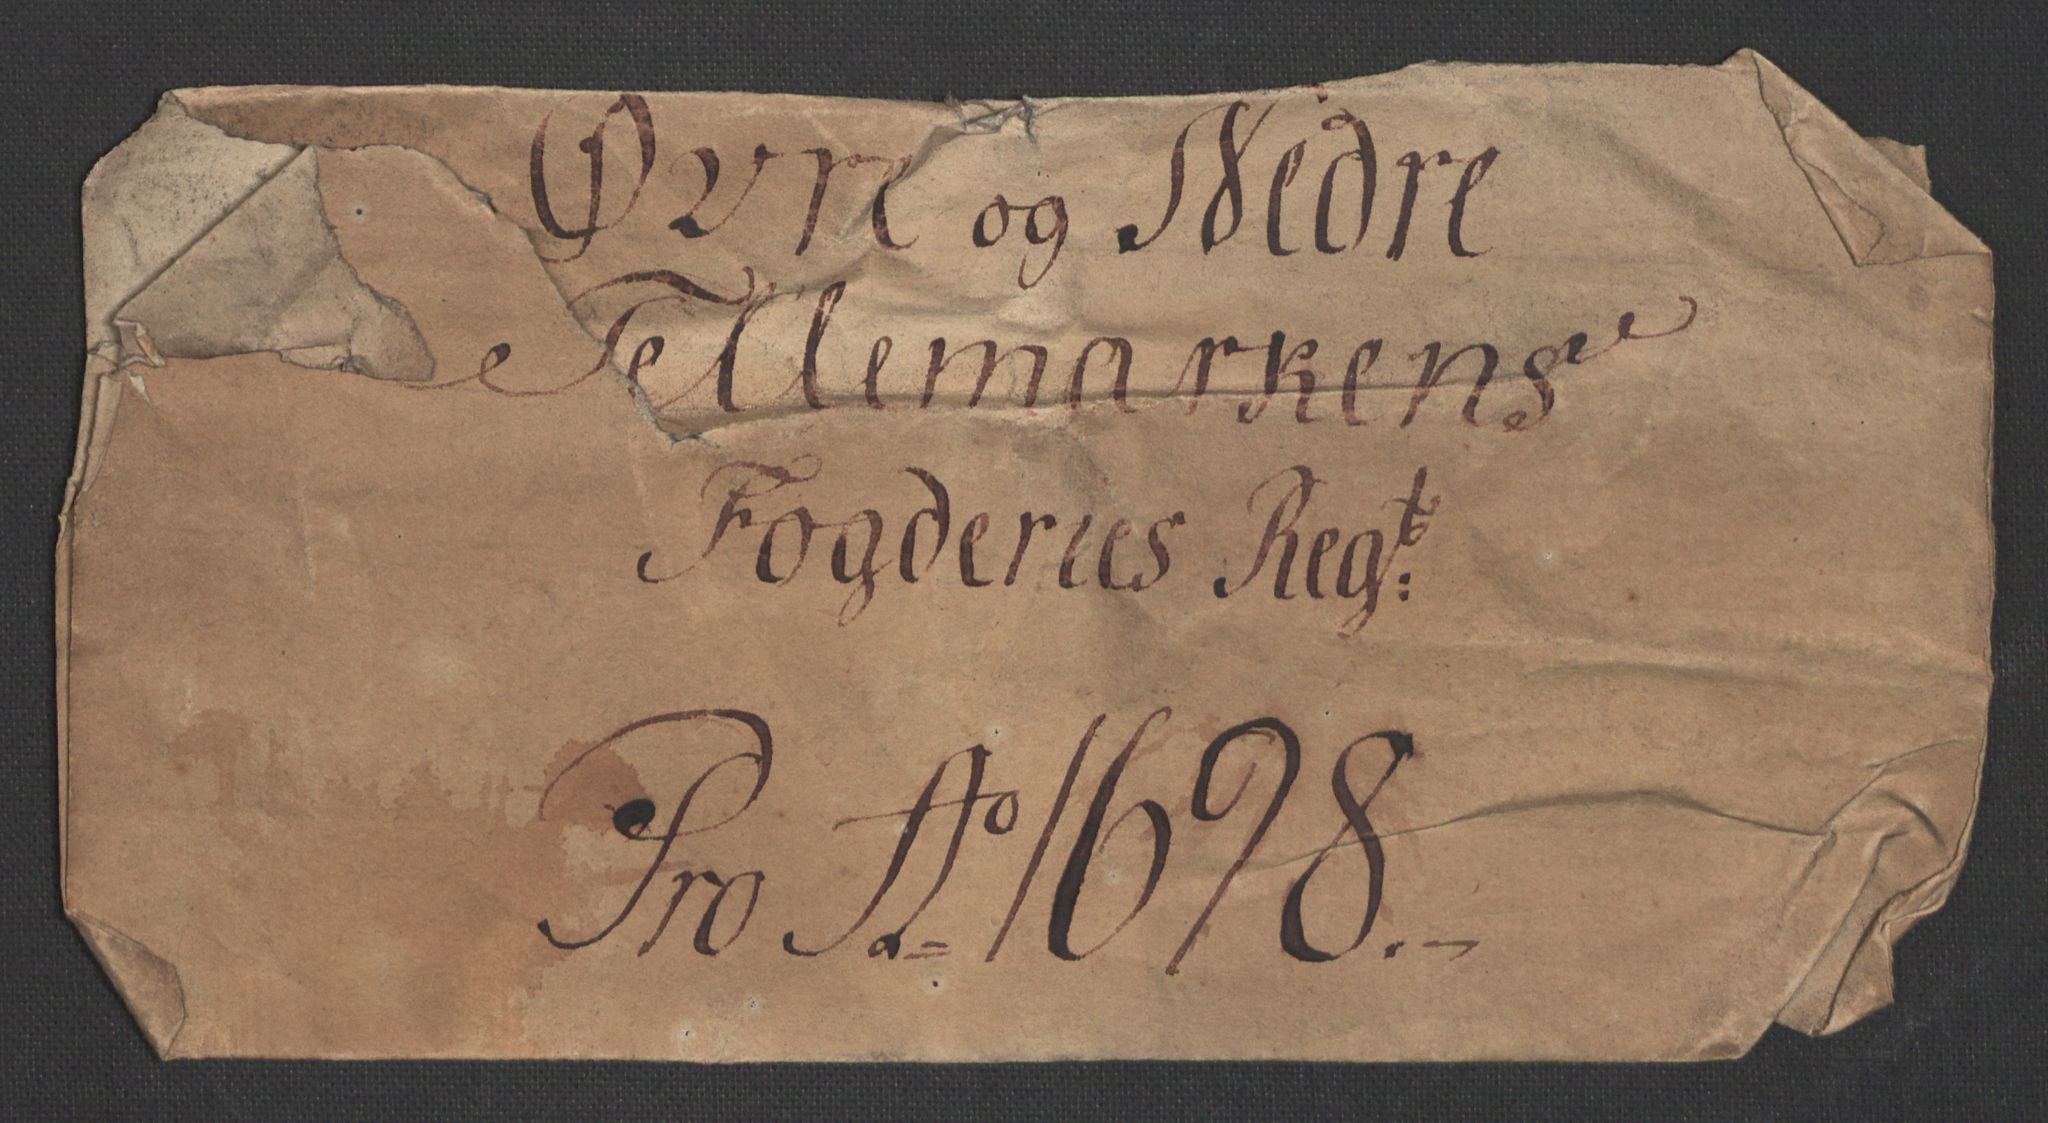 Øvre og Nedre
Tellemarkens
Fogderies Regtb:
Pro Ao 1698.